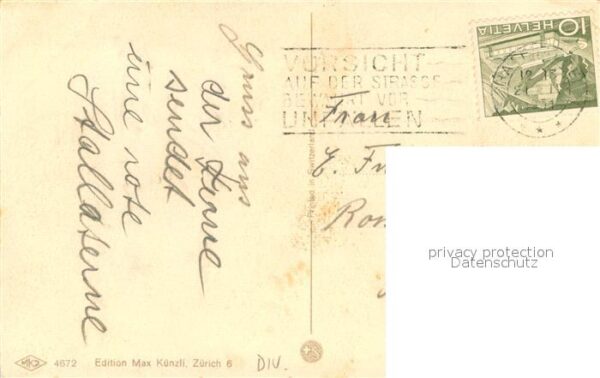 Gruss aus
der Ferne
sendet
eine rote
Stallaterne
VORSICHT
AUF DER STRASSE
BEWAHRT VOR
UNFÄLLEN
HELVETIA 10
Frau
E. Fr
Ro
Printed in Switzerland
privacy protection
Datenschutz
MKZ 4672 Edition Max Künzli, Zürich 6 DIV.